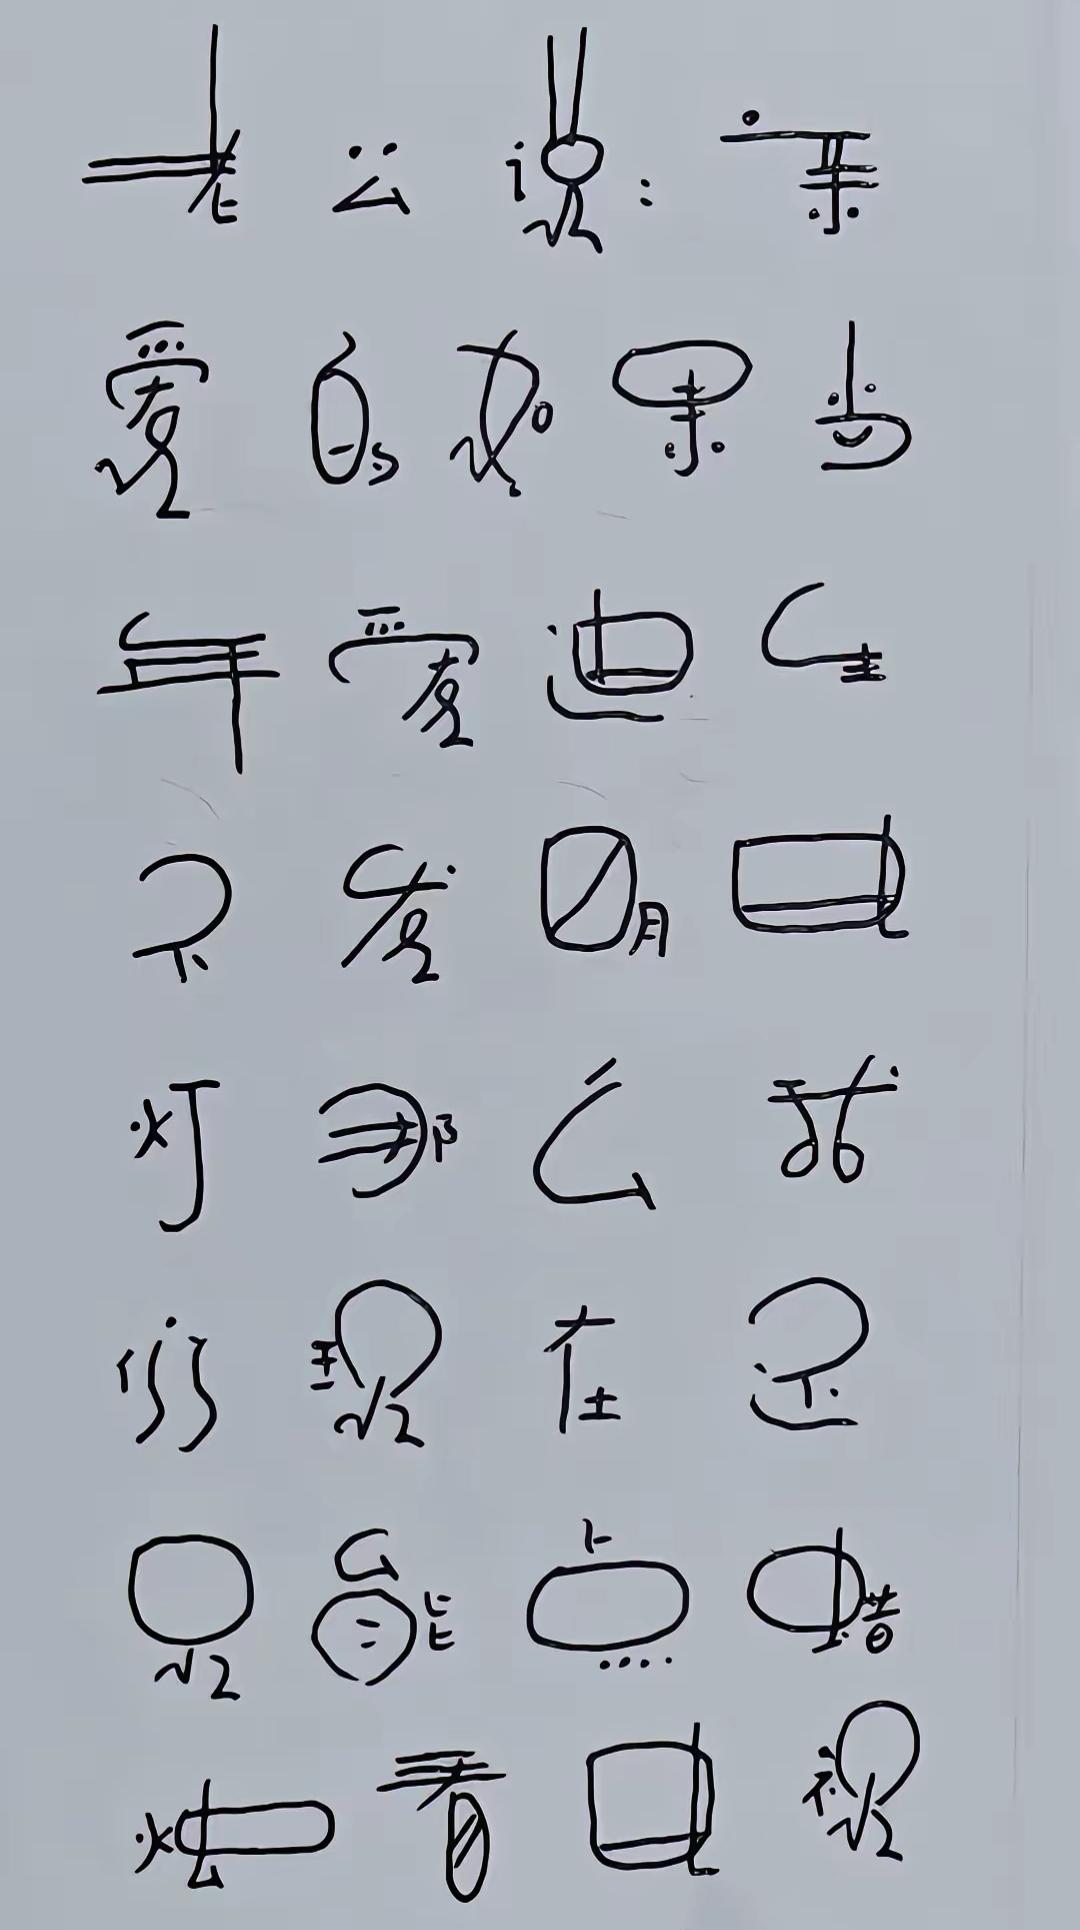 老公说:亲
爱的如果当
年爱迪生
不发明电
灯那么我
们现在还
只能点蜡
烛看电视